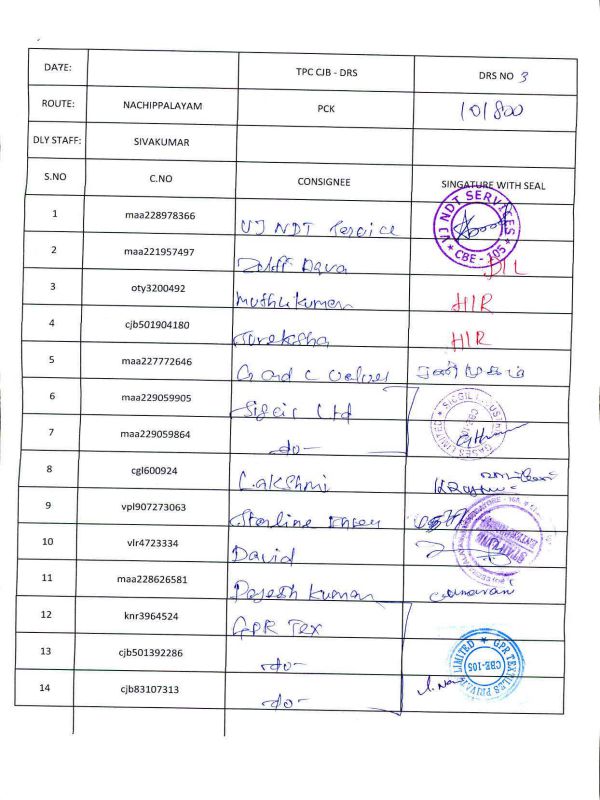 DATE: TPC CJB - DRS DRS NO 3
ROUTE: NACHIPPALAYAM PCK 101800
DLY STAFF: SIVAKUMAR
S.NO C.NO CONSIGNEE SINGATURE WITH SEAL
1 maa228978366 VJ NDT Service VJ NDT SERVICES * CBE - 105 *
2 maa221957497
3 oty3200492 Muthukumar HIR
4 cjb501904180 HIR
5 maa227772646
6 maa229059905 Ltd
7 maa229059864 -do-
8 cgl600924 Lakshmi
9 vpl907273063 Starline
10 vlr4723334 David
11 maa228626581 Rajesh Kumar
12 knr3964524 GPR Tex
13 cjb501392286 -do- GPR TEXTILES PRIVATE LIMITED * CBE-105
14 cjb83107313 -do-